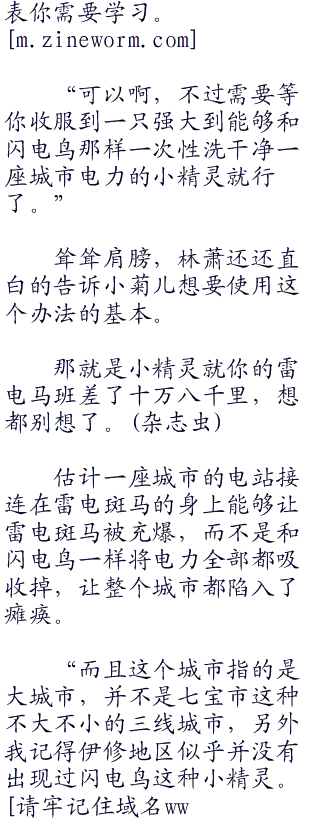 表你需要学习。
[m.zineworm.com]
“可以啊，不过需要等
你收服到一只强大到能够和
闪电鸟那样一次性洗干净一
座城市电力的小精灵就行
了。”
耸耸肩膀，林萧还还直
白的告诉小菊儿想要使用这
个办法的基本。
那就是小精灵就你的雷
电马班差了十万八千里，想
都别想了。(杂志虫)
估计一座城市的电站接
连在雷电斑马的身上能够让
雷电斑马被充爆，而不是和
闪电鸟一样将电力全部都吸
收掉，让整个城市都陷入了
瘫痪。
“而且这个城市指的是
大城市，并不是七宝市这种
不大不小的三线城市，另外
我记得伊修地区似乎并没有
出现过闪电鸟这种小精灵。
[请牢记住域名ww